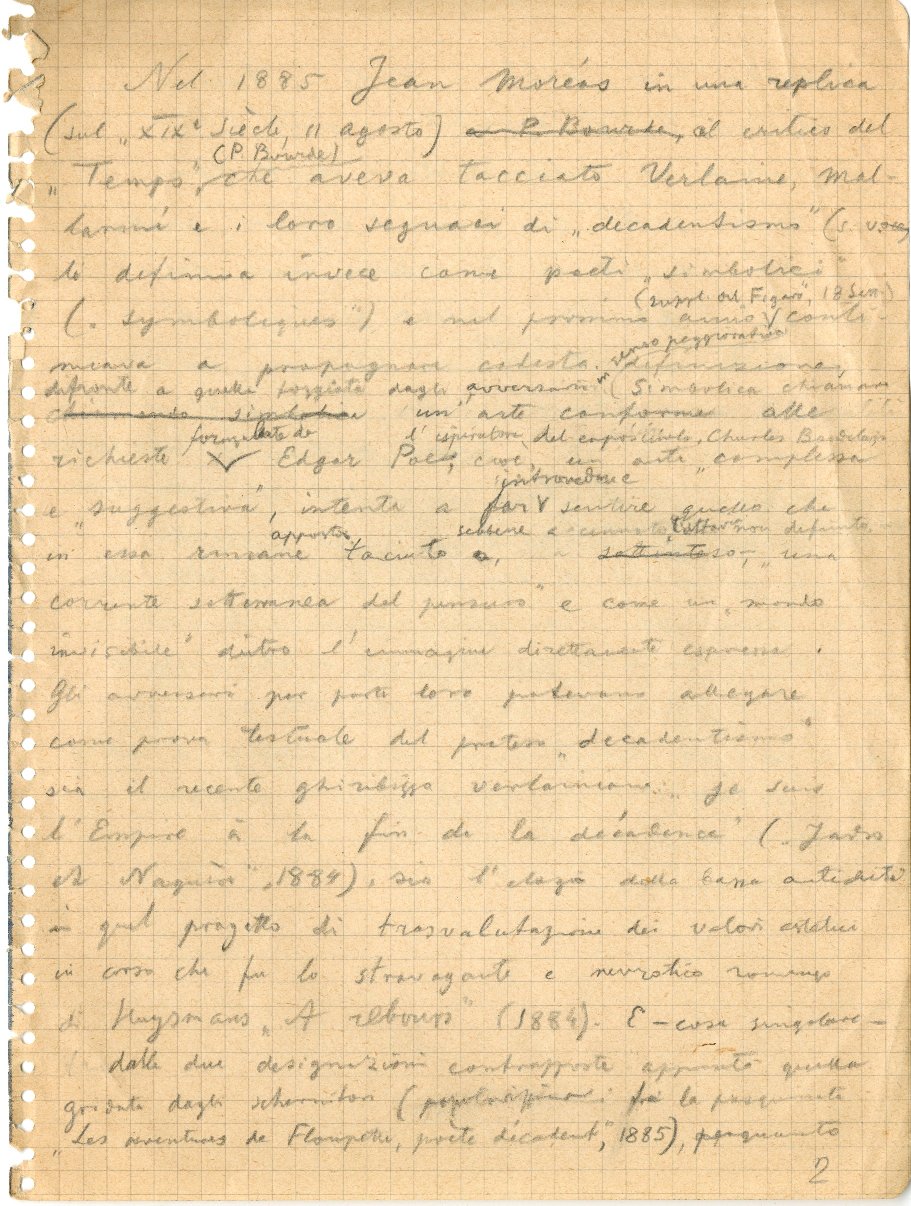 Nel 1885 Jean Moréas in una replica
(sul „XIXe Siècle, 11 agosto) a P. Bourde, al critico del
(P. Bourde)
„Temps", che aveva tacciato Verlaine, Mal-
larmé e i loro seguaci di „decadentismo" (s. voce)
li definiva invece come poeti „simbolici"
(suppl. del Figaro", 18 Sett.)
(„symboliques") e nel prossimo anno conti-
in senso peggiorativo
nuava a propagnare codesta definizione
difronte a quella foggiata dagli avversari. (Simbolica chiamava
chiamando simbolica un'arte conforme alle
formulate da l'ispiratore del caposcuola, Charles Baudelaire
richieste Edgar Poe, cioè, un'arte „complessa
introvedere
e „suggestiva", intenta a far sentire quello che
appunto sebbene accennato, tuttavia non definito,
in essa rimane taciuto o, a sottinteso, „una
corrente sotterranea del pensiero" e come un „mondo
invisibile" dentro l'immagine direttamente espressa.
Gli avversari per parte loro potevano allegare
come prova testuale del preteso „decadentismo"
sia il recente ghiribizzo verlainiano: „Je suis
l'Empire à la fin de la décadence" („Jadis
et Naguère", 1884), sia l'elogio della bassa antichità
in quel progetto di trasvalutazione dei valori estetici
in corso che fu lo stravagante e nevrotico romanzo
di Huysmans „A rebours" (1884). E – cosa singolare –
dalle due designazioni contrapposte appunto quella
gridata dagli schernitori (popolarissima fra la pasquinata
„Les aventures de Floupette, poète décadent", 1885), perquanto
2